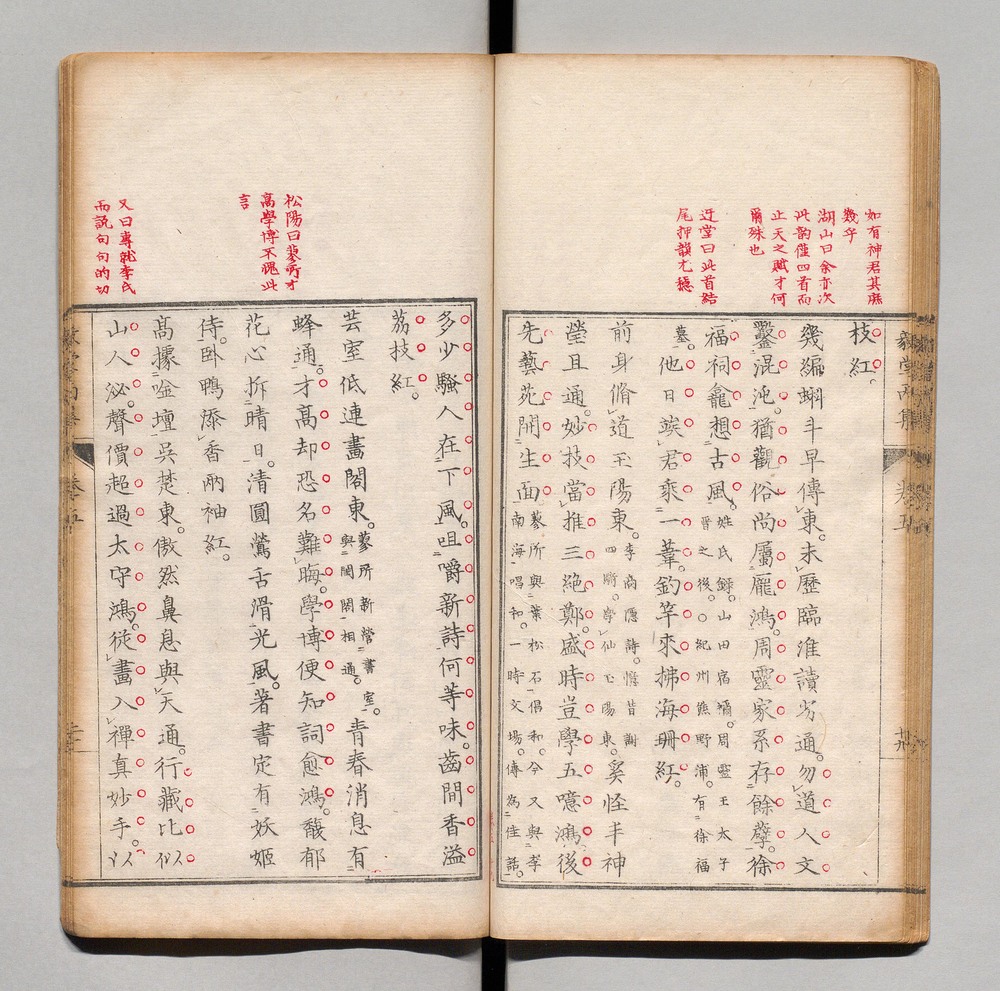 如有神君其庶
幾乎
湖山曰余亦次
此韵僅四首而
止天之賦才何
爾殊也
近堂曰此首結
尾押韻尤穩
枝紅。
幾編蝌斗早傳東。未歷臨淮讀易通。勿道人文
鑿混沌。猶觀俗尚屬龐鴻。周靈家系存餘孽。徐
福祠龕想古風。
姓氏錄。山田宿禰。周靈王太子
晋之後。○紀州熊野浦。有徐福
墓。他日葵君乘一葦。釣竿來拂海珊紅。
前身脩道玉陽東。
李商隱詩。惟昔謝
四嘶。學仙玉陽東。
奚怪丰神
瑩且通。妙技當推三絕鄭。盛時豈學五噫鴻。後
先藝苑開生面。
蓼所與葉松石倡和。今又與李
南海唱和。一時文場。傳為佳話。
多少騷人在下風。咀嚼新詩何等味。齒間香溢
荔枝紅。
芸室低連畫閣東。
蓼所新營書室。
與閨閤相通。
青春消息有
蜂通。才高却恐名難晦。學博便知詞愈鴻。馥郁
花心拆晴日。清圓鶯舌滑光風。著書定有妖姬
侍。臥鴨添香兩袖紅。
高據唫壇吳楚東。傲然鼻息與天通。行藏比似
山人泌。聲價超過太守鴻。徒畫入禪真妙手。以
松陽曰蓼所才
高學博不愧此
言
又曰專就李氏
而說句句的切